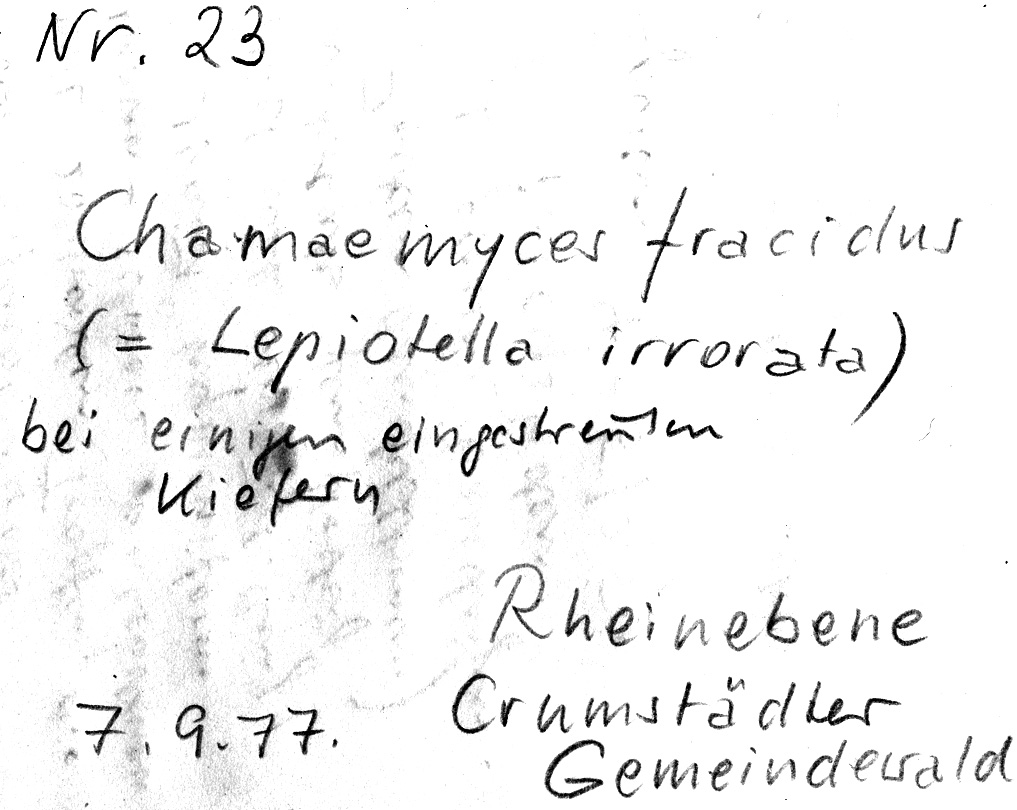 Nr. 23
Chamaemyces fracidus
(= Lepiotella irrorata)
bei einigen eingestreuten
Kiefern
Rheinebene
7.9.77. Crumstädter
Gemeindewald